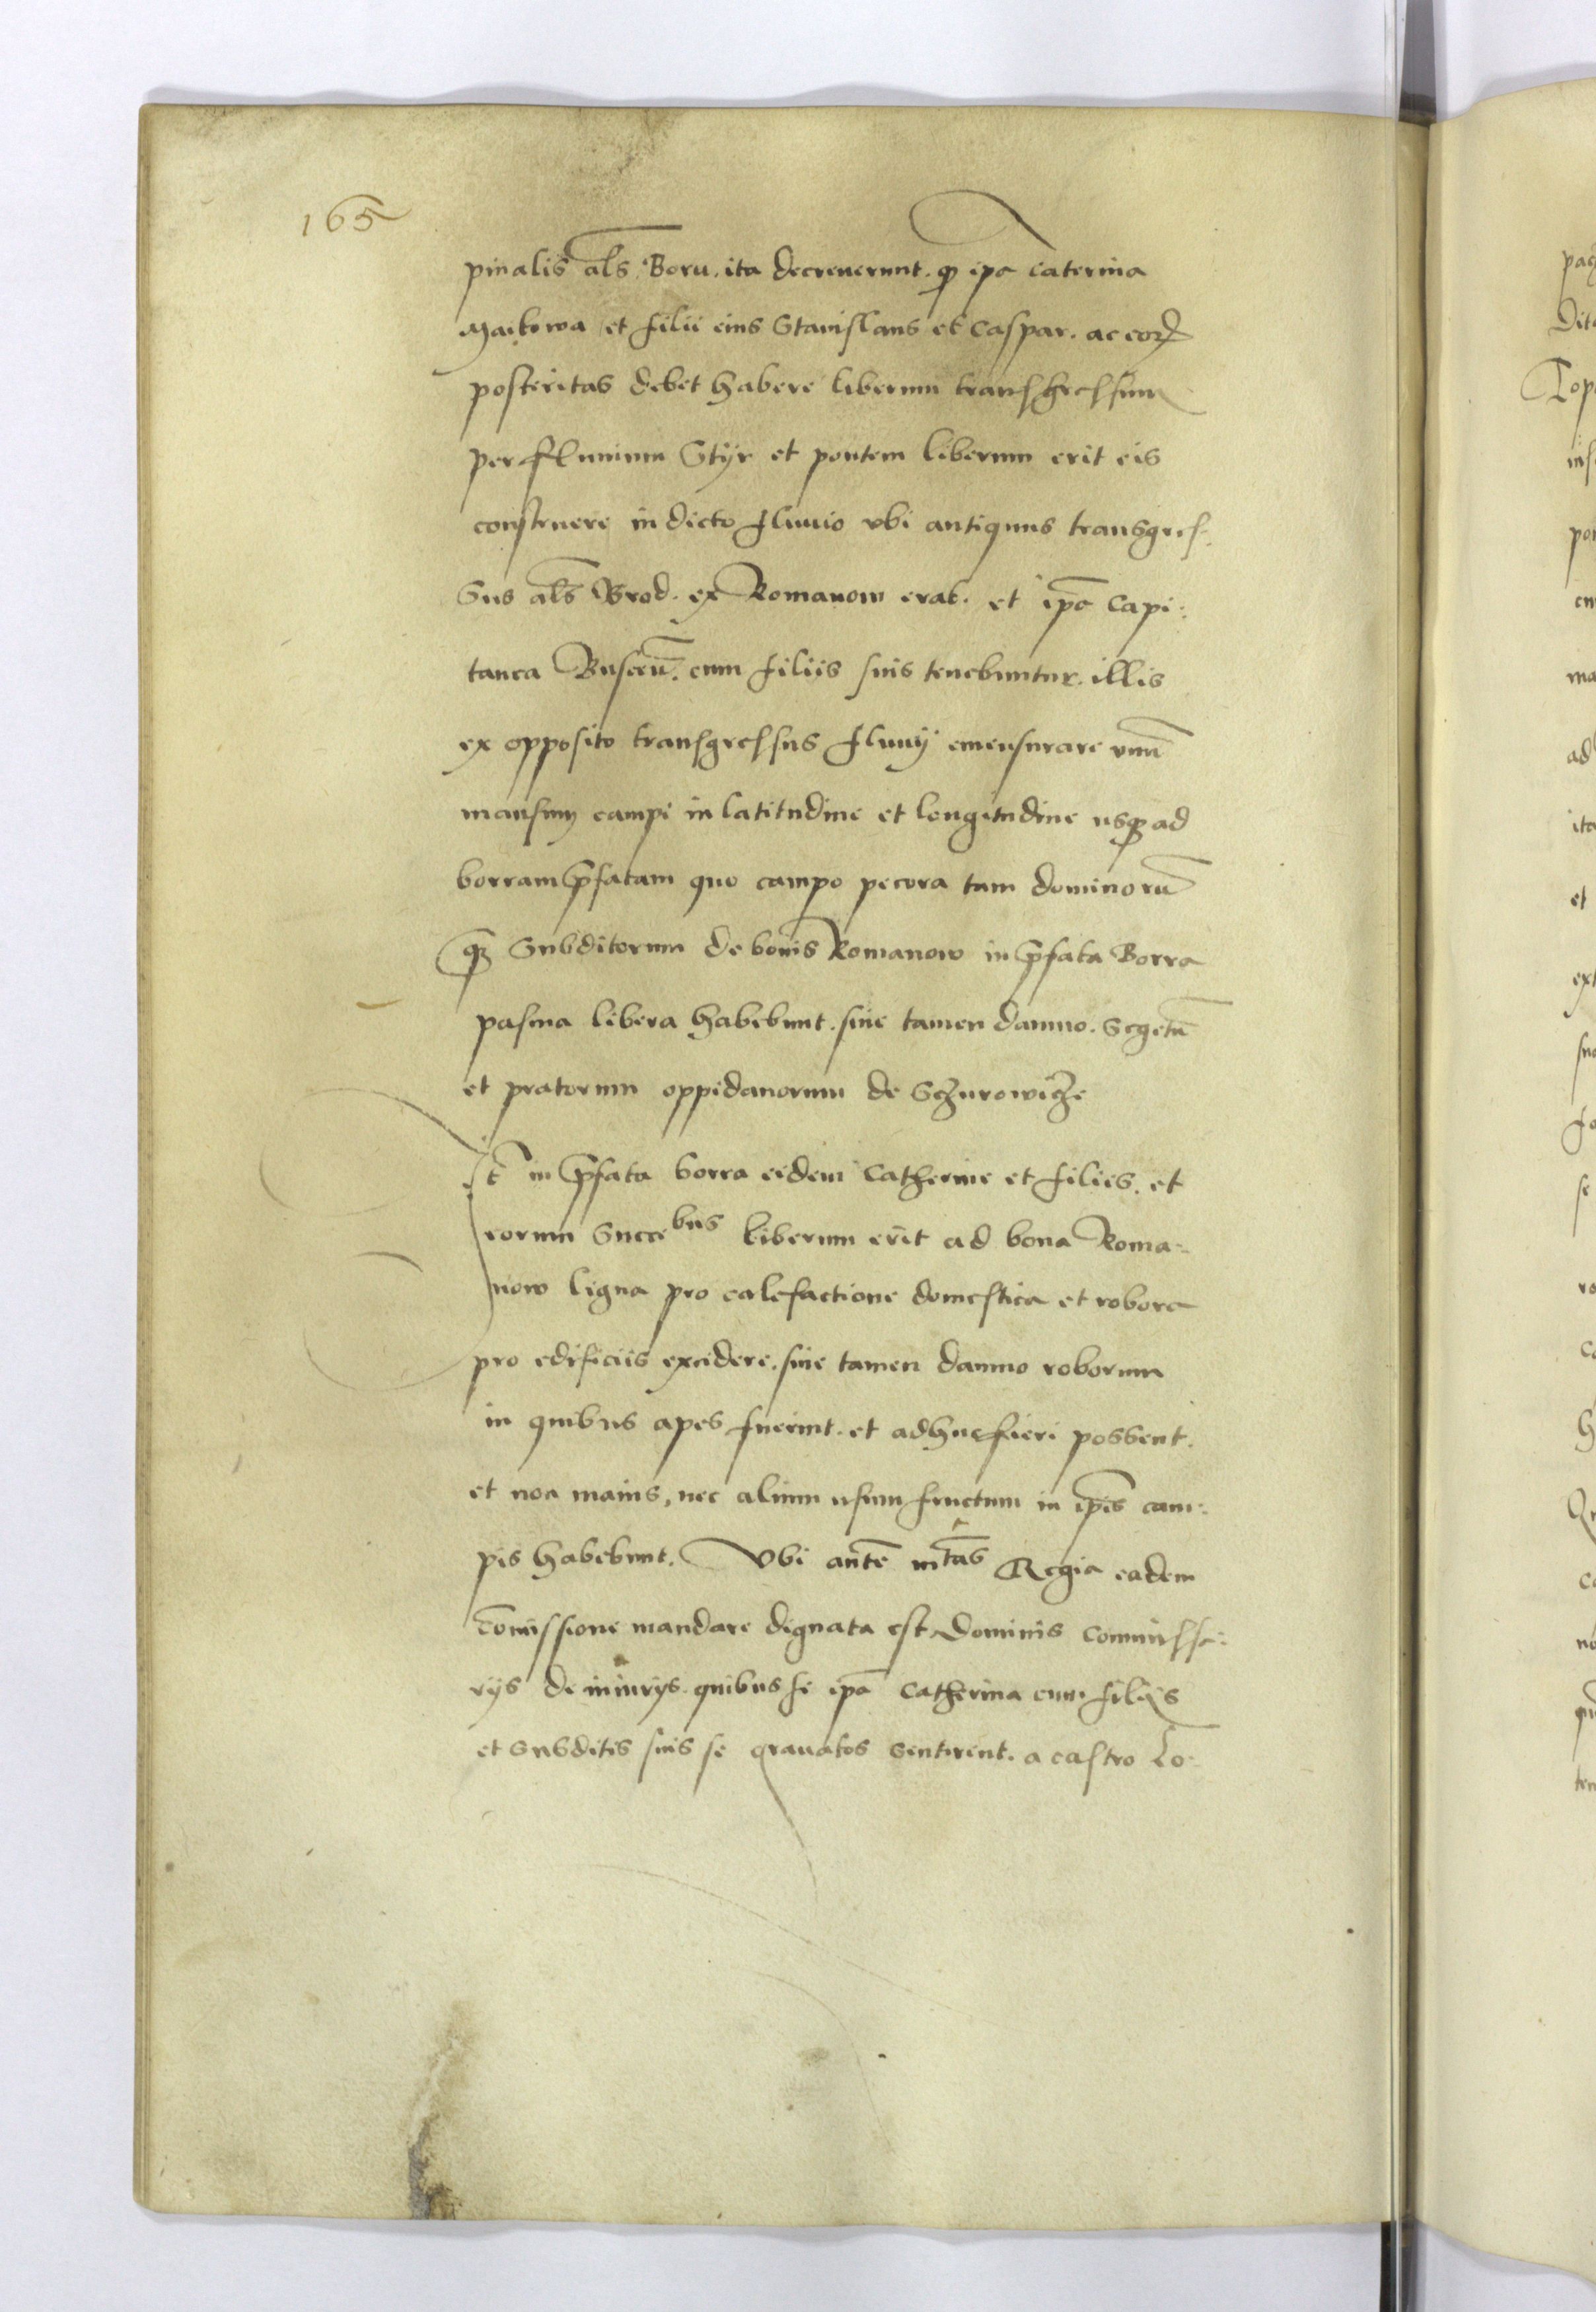 165
pinalis al̅s Boru. ita decreuerunt. ꝙ ipa caterina
Maikowa et filii eius Stanislaus et Caspar. ac eorꝝ
posteritas debet habere liberum transgressum
per fluuium Styr et pontem liberum erit eis
construere in dicto fluuio vbi antiquus transgres-
sus al̅s Brod. ex Romanow erat. et ip̅a Capi:
tanea Buscen̅. cum filiis suis tenebuntur. illis
ex opposito transgressus fluuij emensurare vnu̅
mansum campi in latitudine et longitudine usqꝫ ad
borram p̅fatam quo campo pecora tam dominoru̅
qꝫ Subditorum de bonis Romanow in p̅fata Borra
pascua libera habebunt. sine tamen damno. Segetu̅
et pratorum oppidanorum de Sczurowicze
It̅ in p̅fata borra eidem Catherine et filiis. et
eorum Succ̅bus liberum erit ad bona Roma-
now ligna pro calefactione domestica et robora
pro edificiis excidere. sine tamen damno roborum
in quibus apes fuerint. et adhuc fieri possent.
et non maius, nec alium usumfructum in ip̅is cam:
pis habebunt. Vbi aute̅ m̅tas Regia eadem
co̅missione mandare dignata est Dominis Commissa:
rijs de iniurijs. quibus se ip̅a Catherina cum filijs
et Subditis suis se grauatos sentirent. a castro Lo-